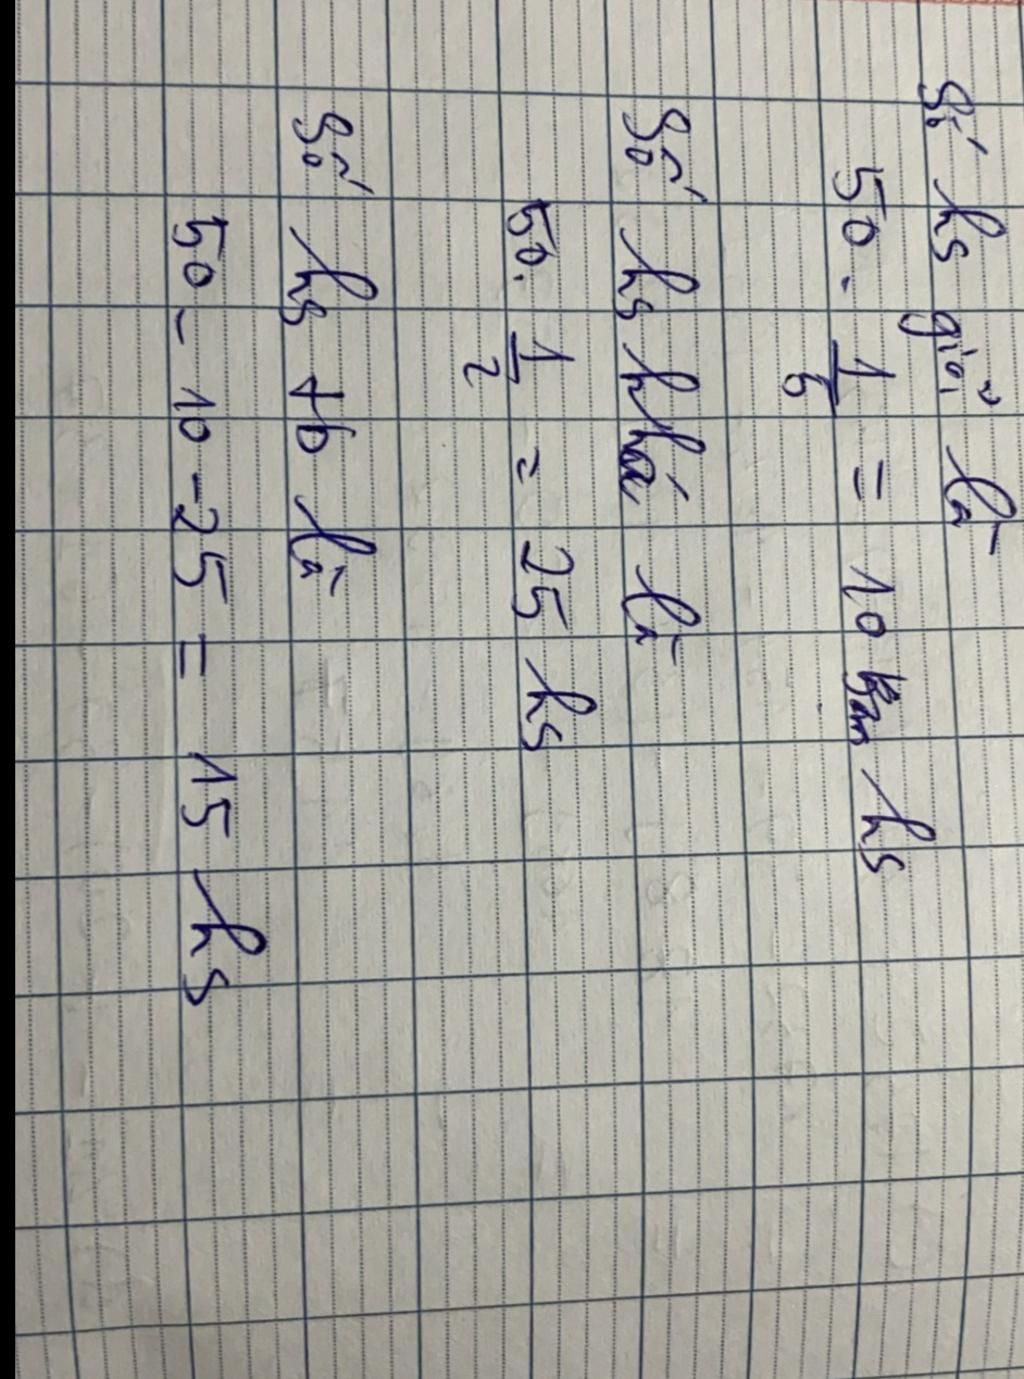 Số hs giỏi là
50 . 1/5 = 10 hs
Số hs khá là
50. 1/2 = 25 hs
Số hs tb là
50 - 10 - 25 = 15 hs